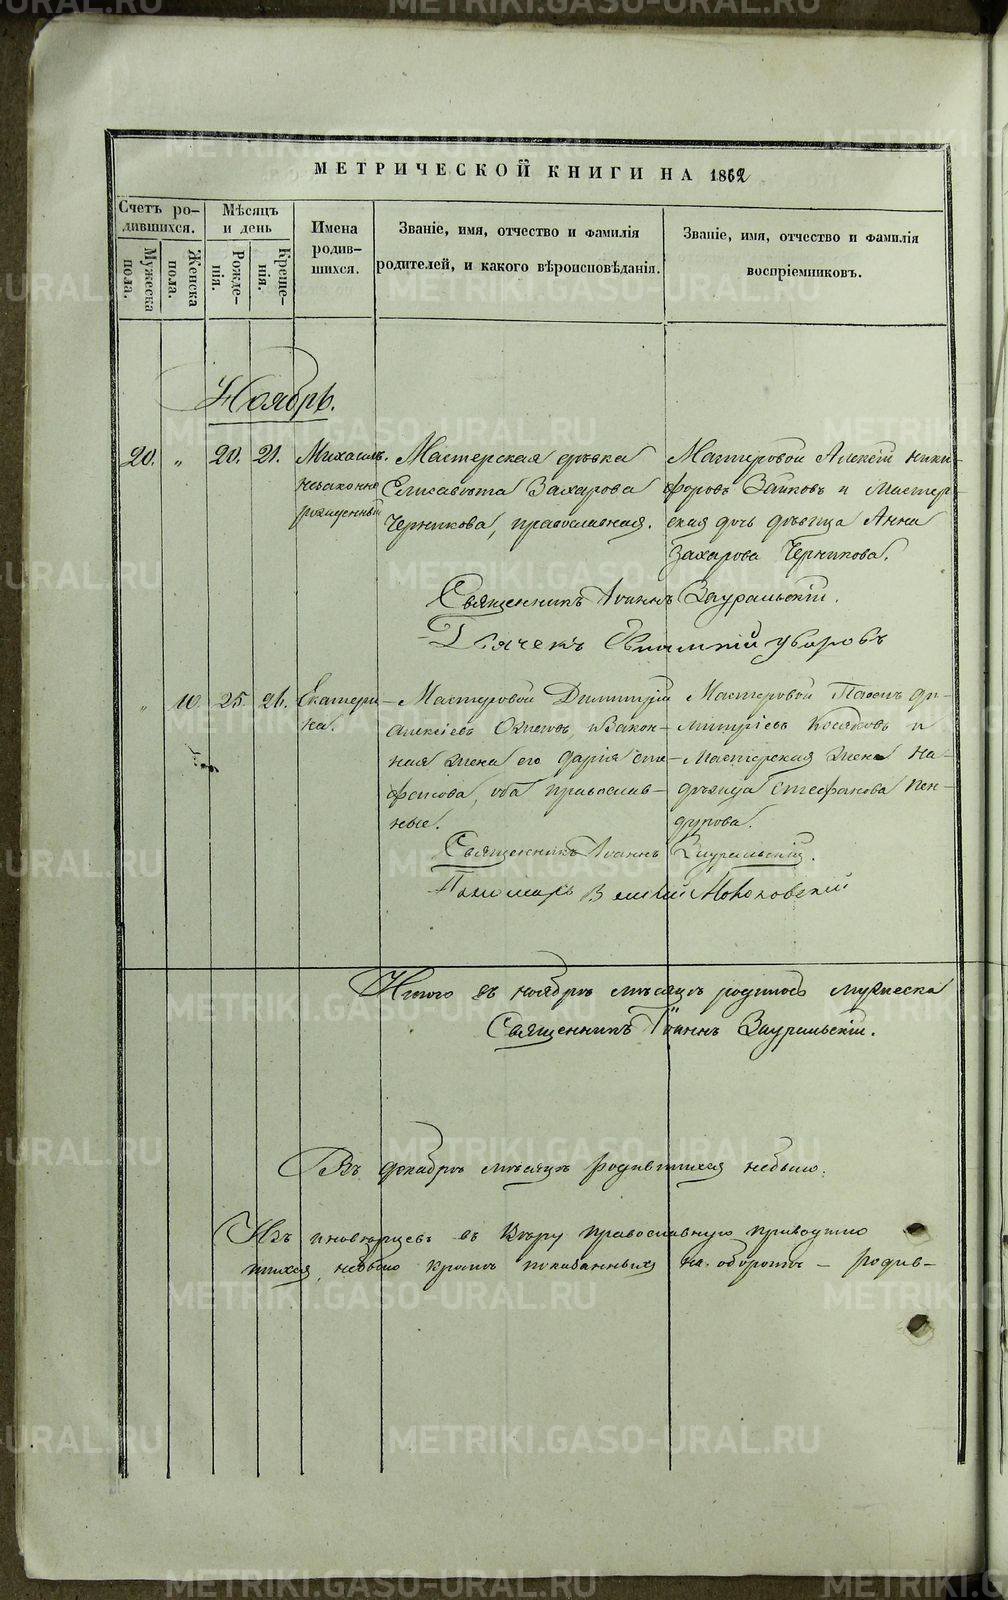 МЕТРИЧЕСКОЙ КНИГИ НА 1862
Счетъ ро-
дившихся.
Мужеска пола.
Женска пола.
Мѣсяцъ
и день
Рожде-
нія.
Креще-
нія.
Имена
родив-
шихся.
Званіе, имя, отчество и фамилія
родителей, и какого вѣроисповѣданія.
Званіе, имя, отчество и фамилія
воспріемниковъ.
Ноябрь.
20. „ 20. 21. Михаилъ.
незаконно
рожденный
Мастерская дѣвка
Елисавѣта Захарова
Черникова, православная.
Мастеровой Алексій Ники-
форовъ Зыковъ и Мастер-
ская дочь дѣвица Анна
Захарова Черникова.
Священникъ Іоаннъ Зауральскій.
Дьячекъ Уваровъ
„ 10. 25. 26. Екатери-
на.
Мастеровой Димитрій
Алексіевъ и закон-
ная жена его Дарія
оба православ-
ные.
Мастеровой Ди-
митріевъ и
Мастерская жена На-
дежда Стефанова
Священникъ Іоаннъ Зауральскій.
Пономарь
Итого въ ноябрѣ мѣсяцѣ родилось мужеска
Священникъ Іоаннъ Зауральскій.
Въ декабрѣ мѣсяцѣ родившихся небыло.
Изъ иновѣрцевъ въ вѣру православную приведено
небыло кромѣ показанныхъ на оборотѣ – родив-
METRIKI.GASO-URAL.RU